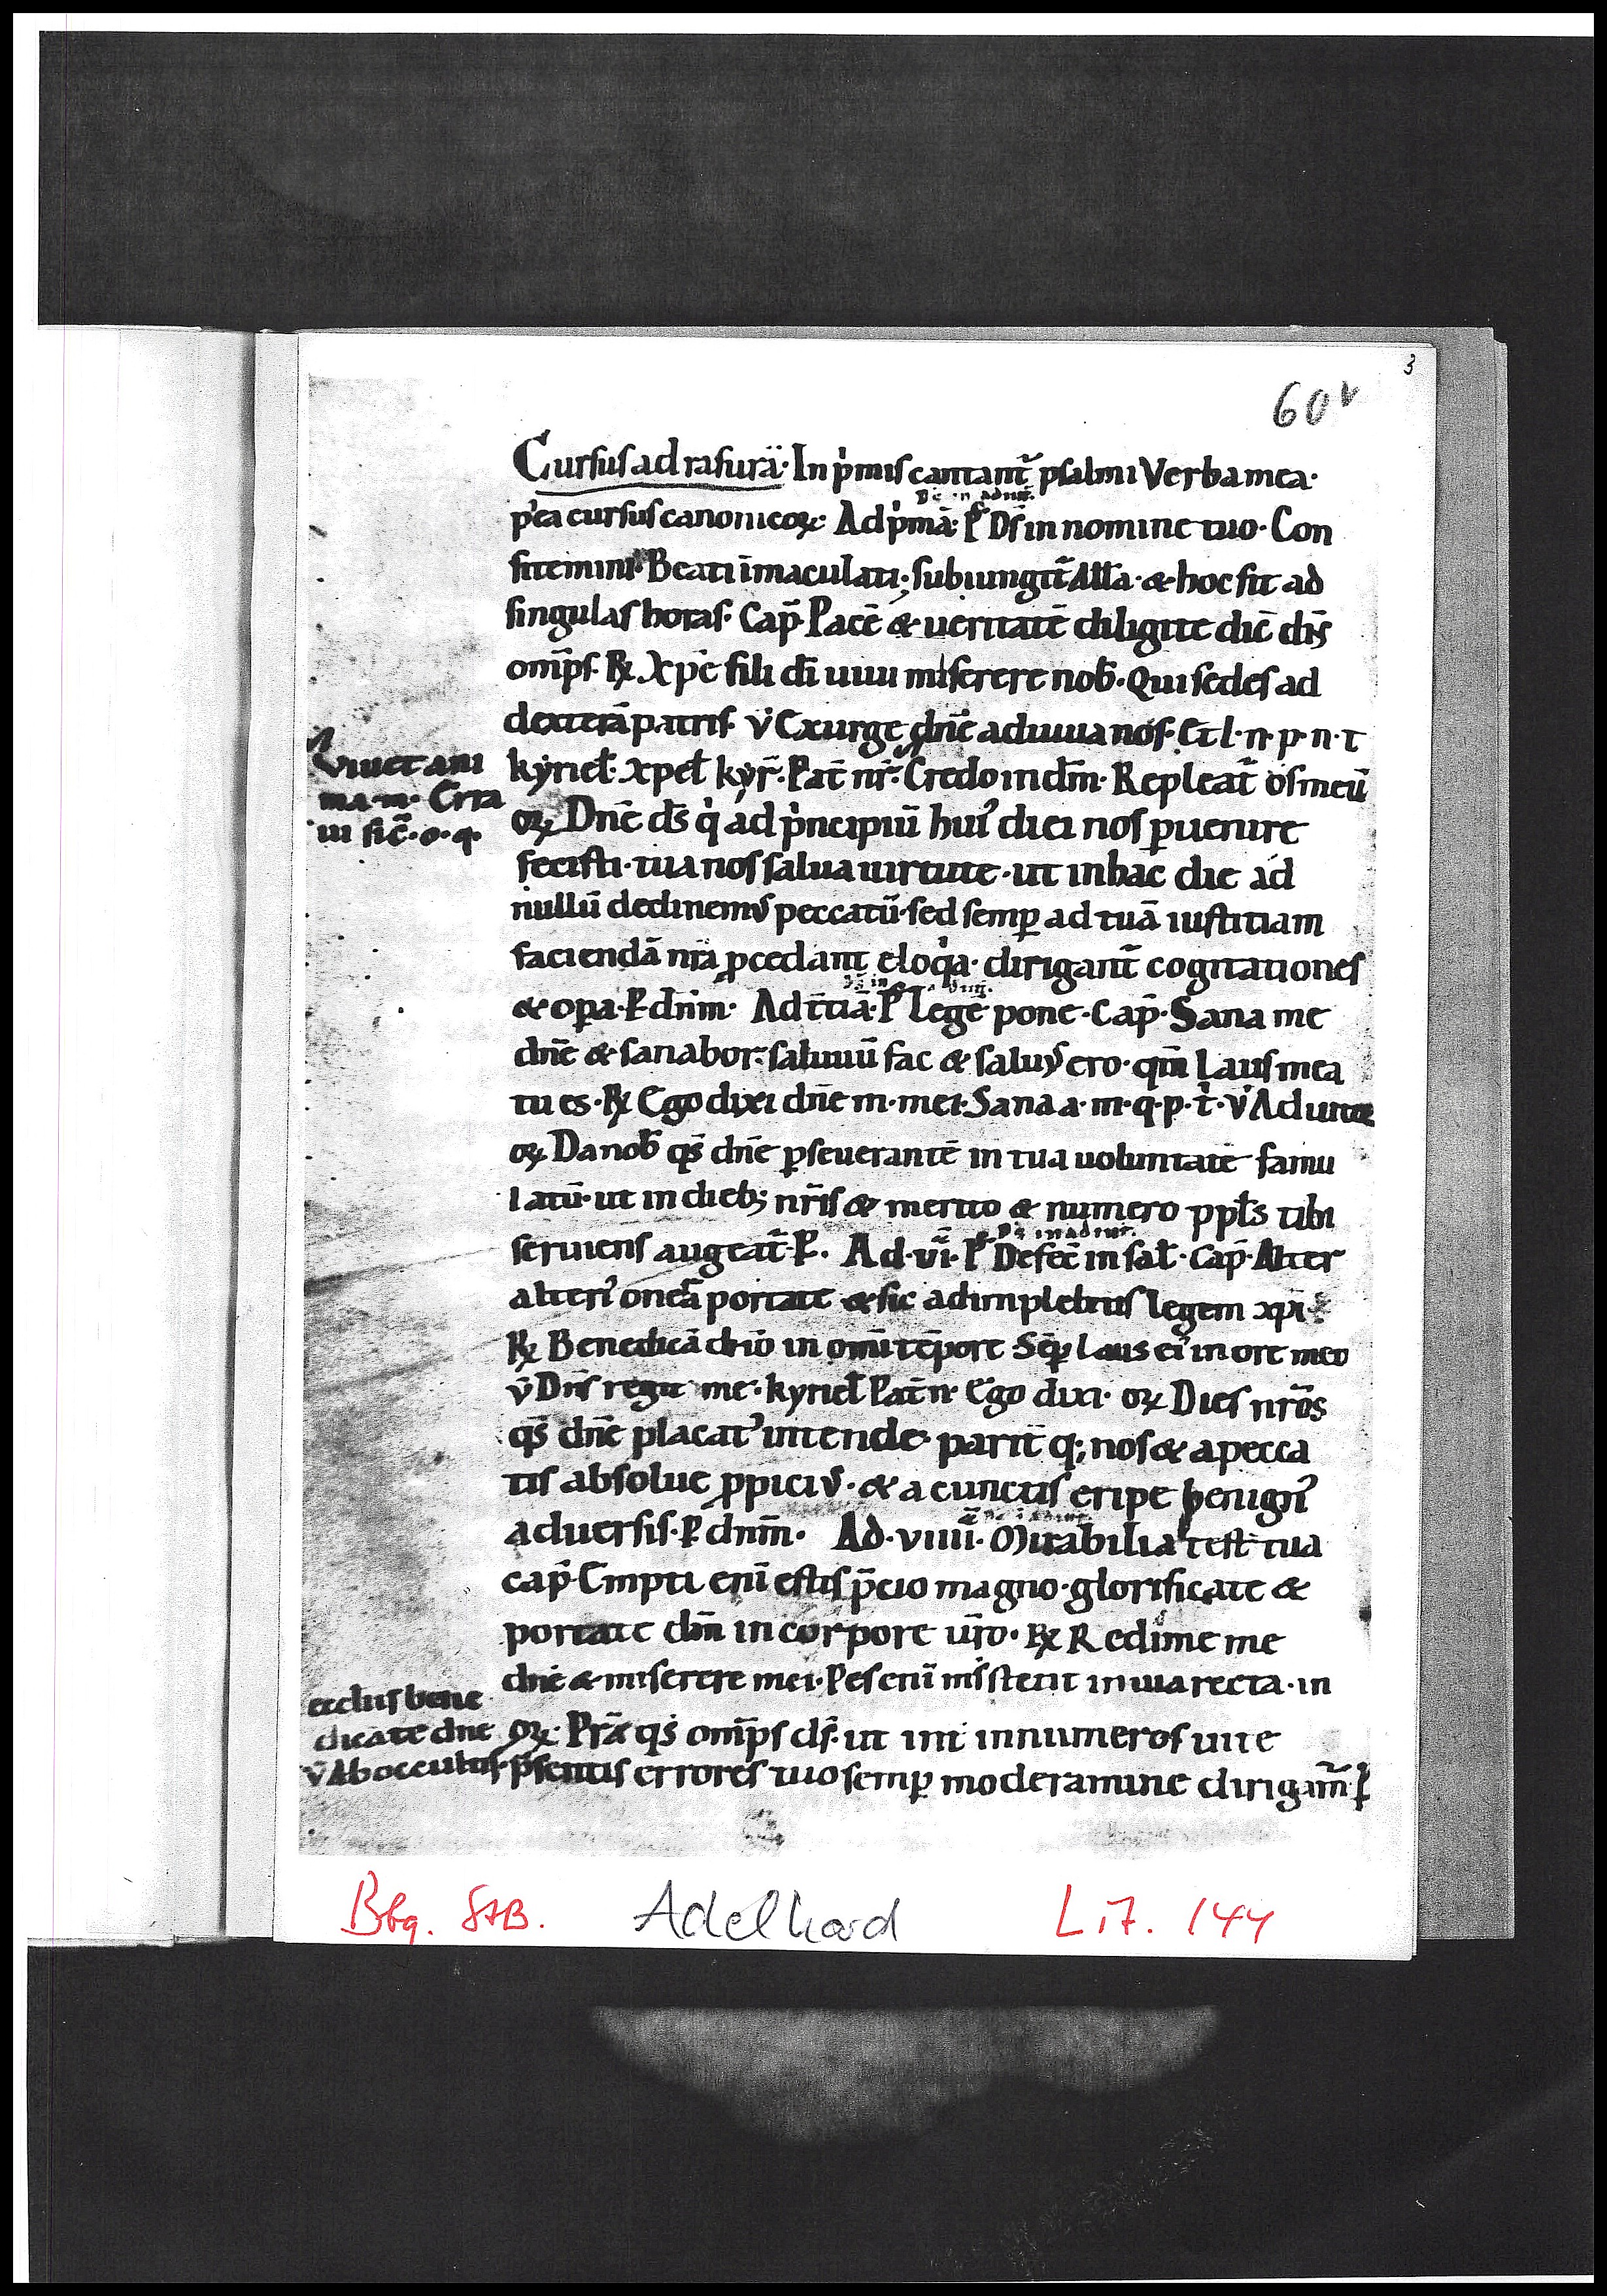 3
60v
Cursus ad rasurā. In p̍mis cantant̄ psalmi Verba mea.
D̄s in adiut.
p̍ea cursus canonicoꝝ. Ad p̍mā. P̄s D̄s in nomine tuo. Con
fitemini. Beati īmaculati. subiungit̄ Alla. & hoc fit ad
singulas horas. Cap̄. Pacē & ueritatē diligite dic̄ dn̄s
om̄ps. ℟ Xp̄e fili dī uiui miserere nob̄. Qui sedes ad
dexterā patris. v̄ Exurge dn̄e adiuua nos. Et l. n. p. n. t
Viuet ani
ma. m. Erra
ui sic̄. o. q.
kyriel̄. xpel̄ kyr̄. Pat̄ nr̄. Credo in dm̄. Repleat̄ os meū
oꝝ Dn̄e ds̄ q̍ ad p̍ncipiū hui᾿ diei nos ꝑuenire
fecisti. tua nos salua uirtute. ut in hac die ad
nullū declinem᾿ peccatū. sed semꝑ ad tuā iustitiam
faciendā nr̄a ꝓcedant eloq̍a. dirigant̄ cogitationes
& oꝑa. P. dn̄m. Ad t̄tiā. P̄s legē pone. Cap̄. Sana me
dn̄e & sanabor. saluuū fac & salu᾿ ero. qm̄ laus mea
tu es. ℟ Ego dixi dn̄e m. mei. Sana a. m. q. p. t̍. v̄ Adiutor
oꝝ Da nob̄ qs̄ dn̄e ꝑseuerantē in tua uoluntate famu
latū. ut in dieb; nr̄is & merito & numero ppl̄s tibi
D̄s in adiut.
seruiens augeat̄. P. Ad. vi. P̄s Defec̄ in sal̄. Cap̄. Alter
alteri᾿ onera portate & sic adimplebitis legem xp̄i.
℟ Benedicā dn̄o in om̄i tēpore Sēꝑ laus ei᾿ in ore meo
v̄ Dn̄s regit me. kyriel̄ Pat̄ n. Ego dixi. oꝝ Dies nr̄os
qs̄ dn̄e placat᾿ intende. parit̄ q; nos & a pecca
tis absolue ꝓpici᾿. & a cunctis eripe benign᾿
aduersis. P dn̄m. Ad. viiii. Mirabilia test̄ tua
cap̄. Empti eni᾿ estis p̄cio magno. glorificate &
portate dm̄ in corpore ur̄o. ℟ Redime me
dn̄e & miserere mei. Pes enī m̍s stetit in uia recta. in
ecclīis bene
dicate dn̄e
v̄ Ab occultis
oꝝ. Pr̄a qs̄ om̄ps ds̄. ut int̍ innumeros uite
p̄sentis errores tuo semꝑ moderamine dirigam̄. P
Bbg. StB. Adelhard Lit. 144